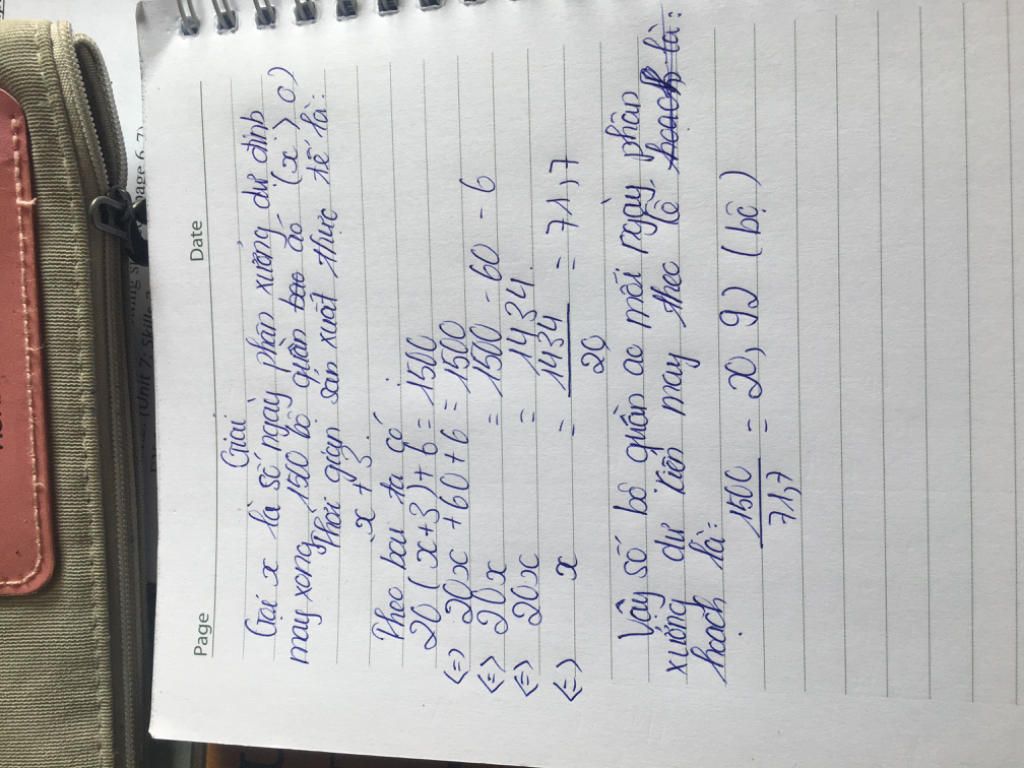 Page
Date
Giải
Gọi x là số ngày phân xưởng dự định
may xong 1500 bộ quần áo đó (x > 0)
Thời gian sản xuất thực tế là:
x + 3
Theo bài ta có:
20(x+3)+6 = 1500
(=) 20x + 60 + 6 = 1500
(=) 20x = 1500 - 60 - 6
(=) 20x = 1434
(=) x = 1434/20 = 71,7
Vậy số bộ quần áo mỗi ngày phân
xưởng dự kiến may theo kế hoạch là:
hoạch là:
1500/71,7 = 20,92 (bộ)